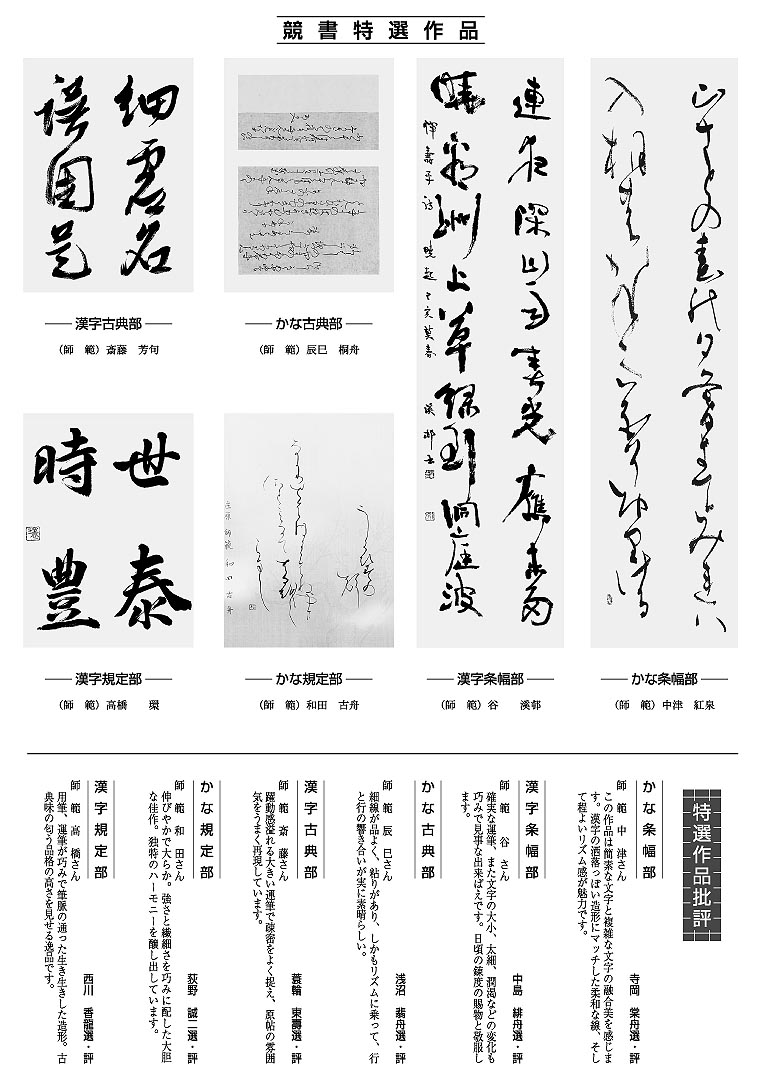 競書特選作品
細君名
誤国是
漢字古典部
（師　範）斎藤　芳句
かな古典部
（師　範）辰巳　桐舟
世泰
時豊
漢字規定部
（師　範）高橋　環
うぐひすの
玄穹師範 和田古舟
かな規定部
（師　範）和田　古舟
連夜深山雨春光應未多
曉看洲上草緑到洞庭波
惲壽平詩 曉起 己亥莫春 溪邨書
漢字条幅部
（師　範）谷　溪邨
かな条幅部
（師　範）中津　紅泉
特選作品批評
かな条幅部
師　範　中　津さん
寺岡　棠舟選・評
この作品は簡素な文字と複雑な文字の融合美を感じま
す。漢字の洒落っぽい造形にマッチした柔和な線、そし
て程よいリズム感が魅力です。
漢字条幅部
師　範　谷　さん
中島　緋舟選・評
確実な運筆、また文字の大小、太細、潤渇などの変化も
巧みで見事な出来ばえです。日頃の錬度の賜物と敬服し
ます。
かな古典部
師　範　辰　巳さん
浅沼　翡舟選・評
細線が品よく、粘りがあり、しかもリズムに乗って、行
と行の響き合いが実に素晴らしい。
漢字古典部
師　範　斎　藤さん
蓑輪　東壽選・評
躍動感溢れる大きい運筆で疎密をよく捉え、原帖の雰囲
気をうまく再現しています。
かな規定部
師　範　和　田さん
荻野　誠二選・評
伸びやかで大らか。強さと繊細さを巧みに配した大胆
な佳作。独特のハーモニーを醸し出しています。
漢字規定部
師　範　高　橋さん
西川　香龍選・評
用筆、運筆が巧みで筆脈の通った生き生きした造形。古
典味の匂う品格の高さを見せる逸品です。